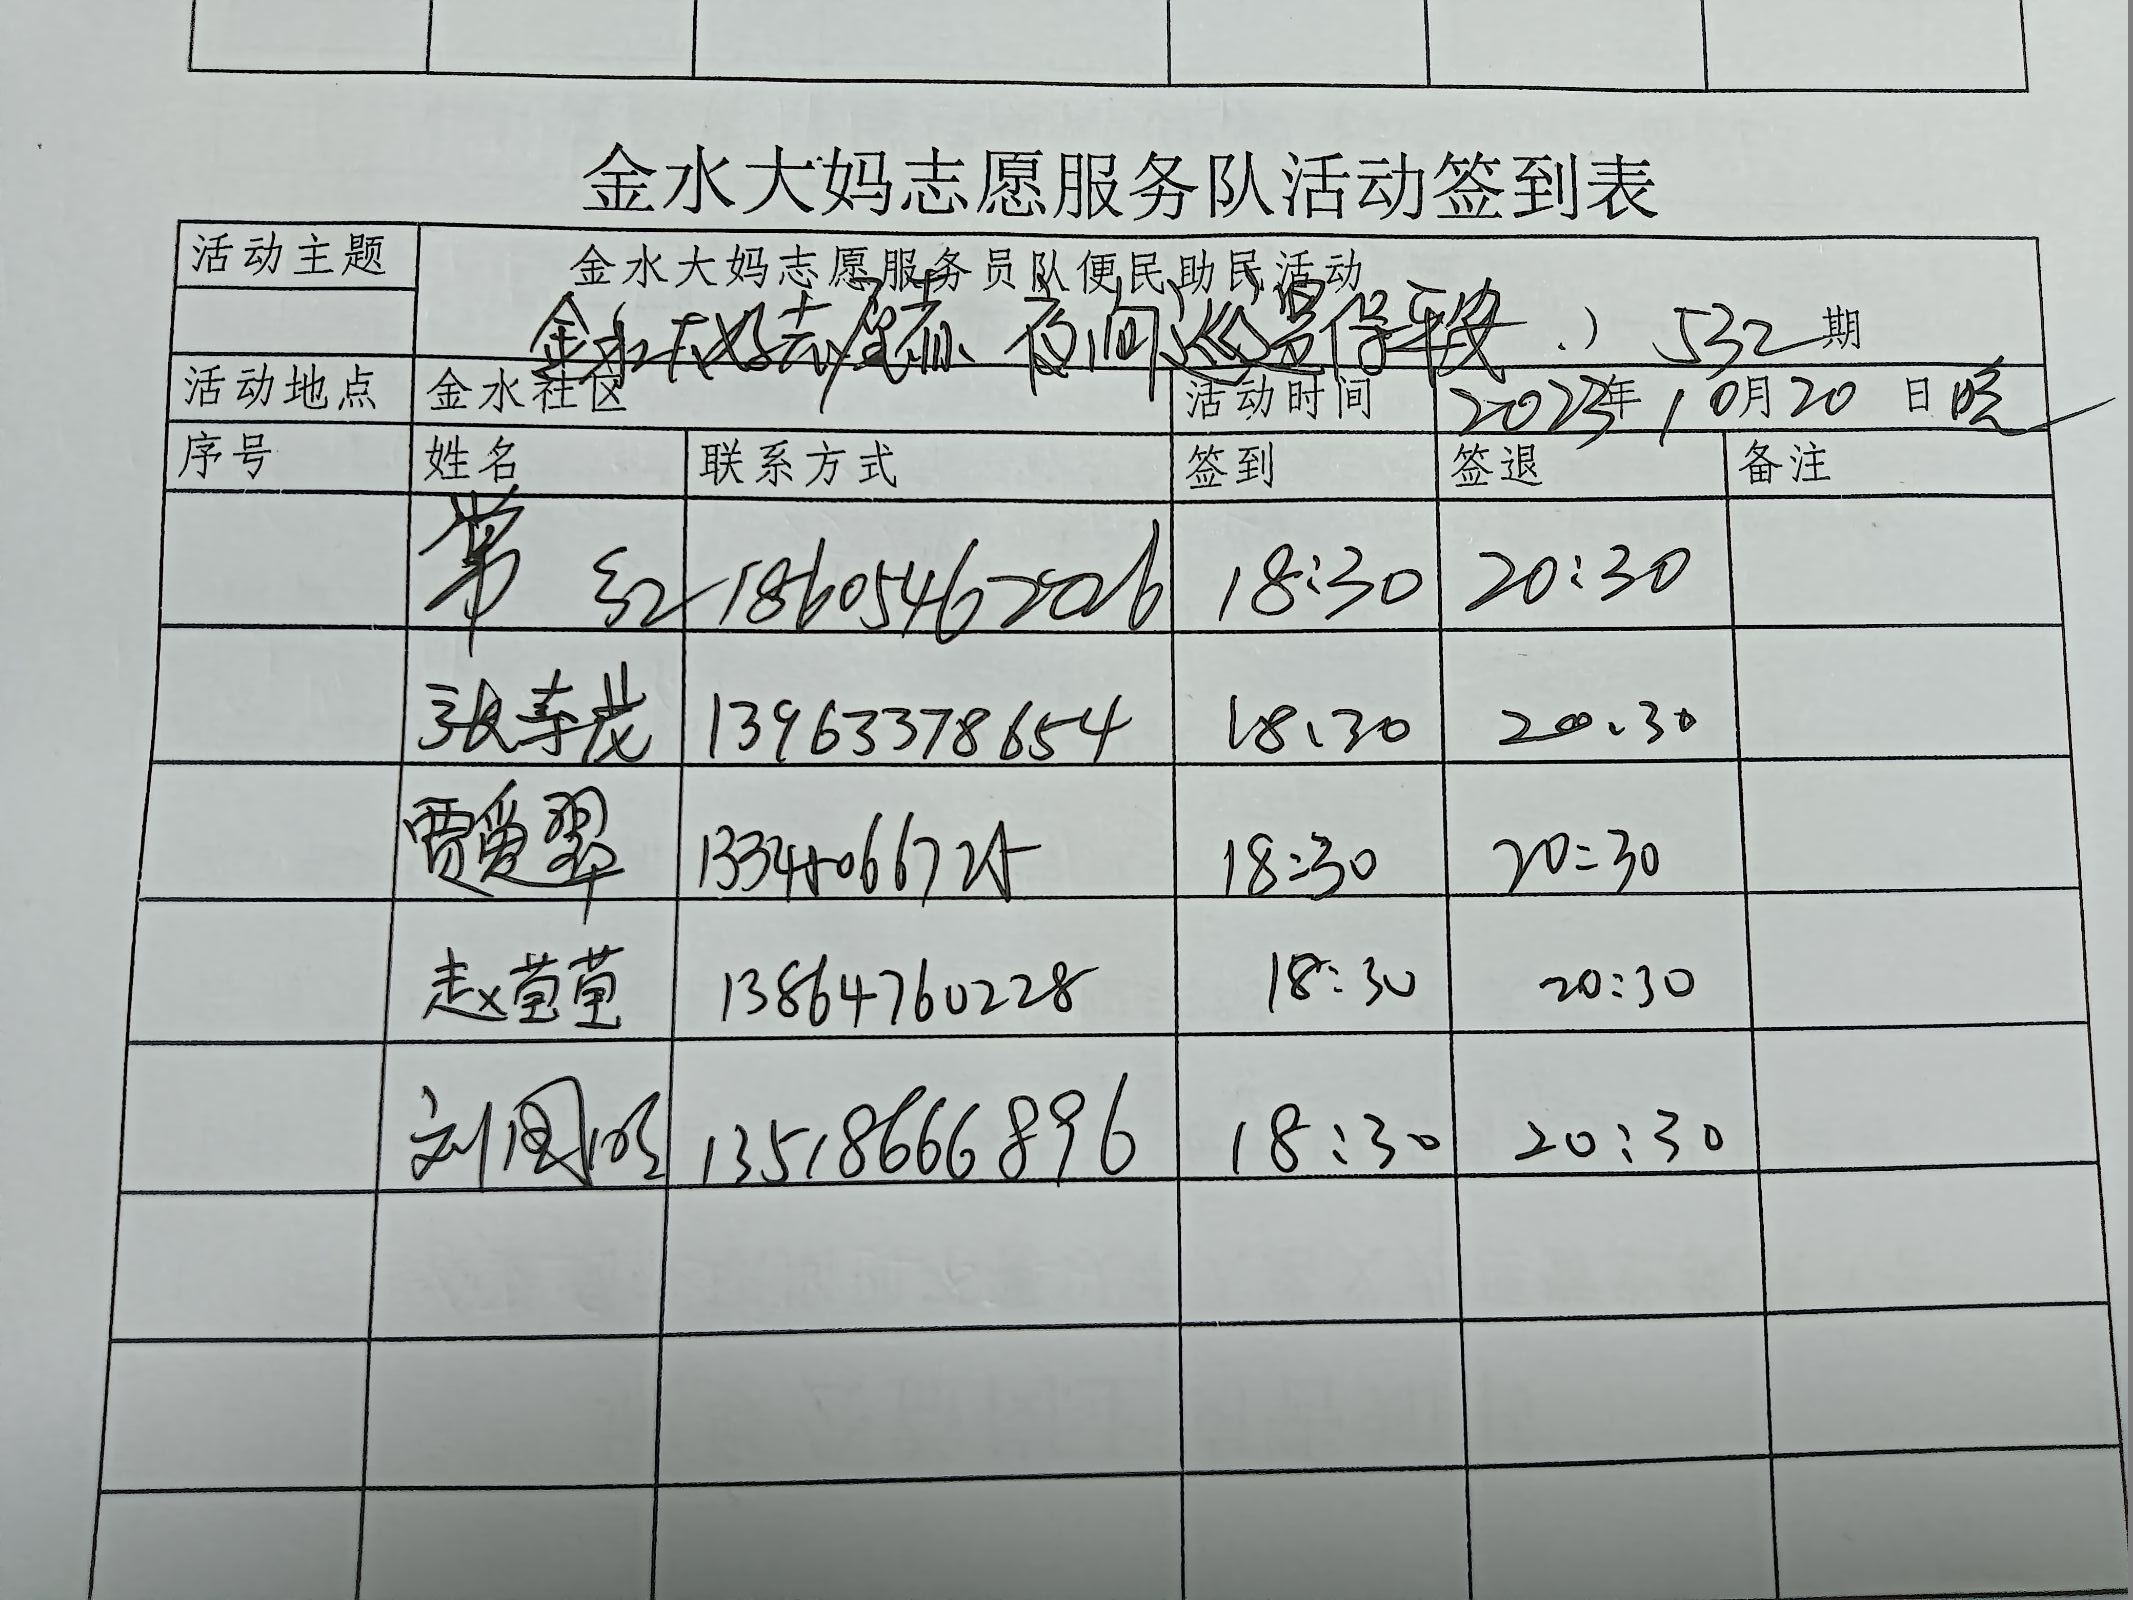 金水大妈志愿服务队活动签到表
活动主题 金水大妈志愿服务员队便民助民活动
金水大妈志愿者 夜间巡逻保平安 ） 532期
活动地点 金水社区 活动时间 2023年10月20日晚
序号 姓名 联系方式 签到 签退 备注
常红 18605462026 18:30 20:30
张寿茂 13963378654 18:30 20:30
贾爱翠 13345066725 18:30 20:30
赵萱萱 13864760228 18:30 20:30
刘国明 13518666896 18:30 20:30